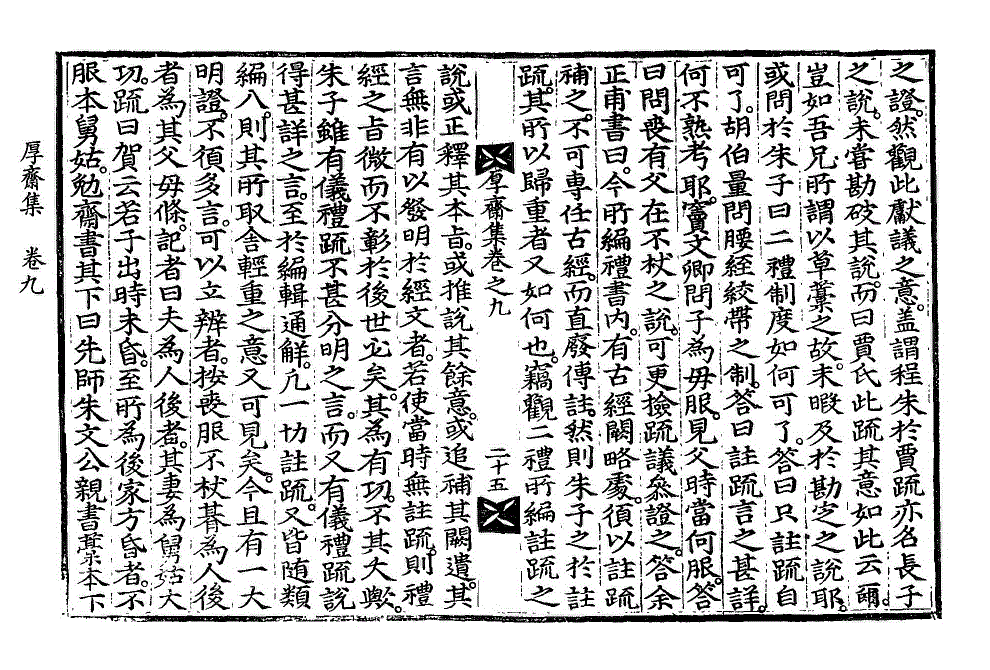 之證。然觀此獻議之意。蓋謂程朱於賈疏亦名長子
之說。未嘗勘破其說。而曰賈氏此疏其意如此云爾。
豈如吾兄所謂以草藁之故。未暇及於勘定之說耶。
或問於朱子曰二禮制度如何可了。答曰只註疏自
可了。胡伯量問腰絰絞帶之制。答曰註疏言之甚詳。
何不熟考耶。竇文卿問子為母服。見父時當何服。答
曰問喪有父在不杖之說。可更撿疏議參證之。答余
正甫書曰。今所編禮書內。有古經闕略處。須以註疏
補之。不可專任古經。而直廢傳註。然則朱子之於註
疏。其所以歸重者又如何也。竊觀二禮所編註疏之
厚齋集卷之九
二十五
說或正釋其本旨。或推說其餘意。或追補其闕遺。其
言無非有以發明於經文者。若使當時無註疏。則禮
經之旨微而不彰於後世必矣。其為有功。不其大歟。
朱子雖有儀禮疏不甚分明之言。而又有儀禮疏說
得甚詳之言。至於編輯通解。凡一切註疏。又皆随類
編入。則其所取舍輕重之意又可見矣。今且有一大
明證。不須多言。可以立辨者。按喪服不杖朞為人後
者為其父母條。記者曰夫為人後者。其妻為舅姑大
功。疏曰賀云若子出時未昏。至所為後家方昏者。不
服本舅姑。勉齋書其下曰先師朱文公親書藁本下
厚齋集　卷九